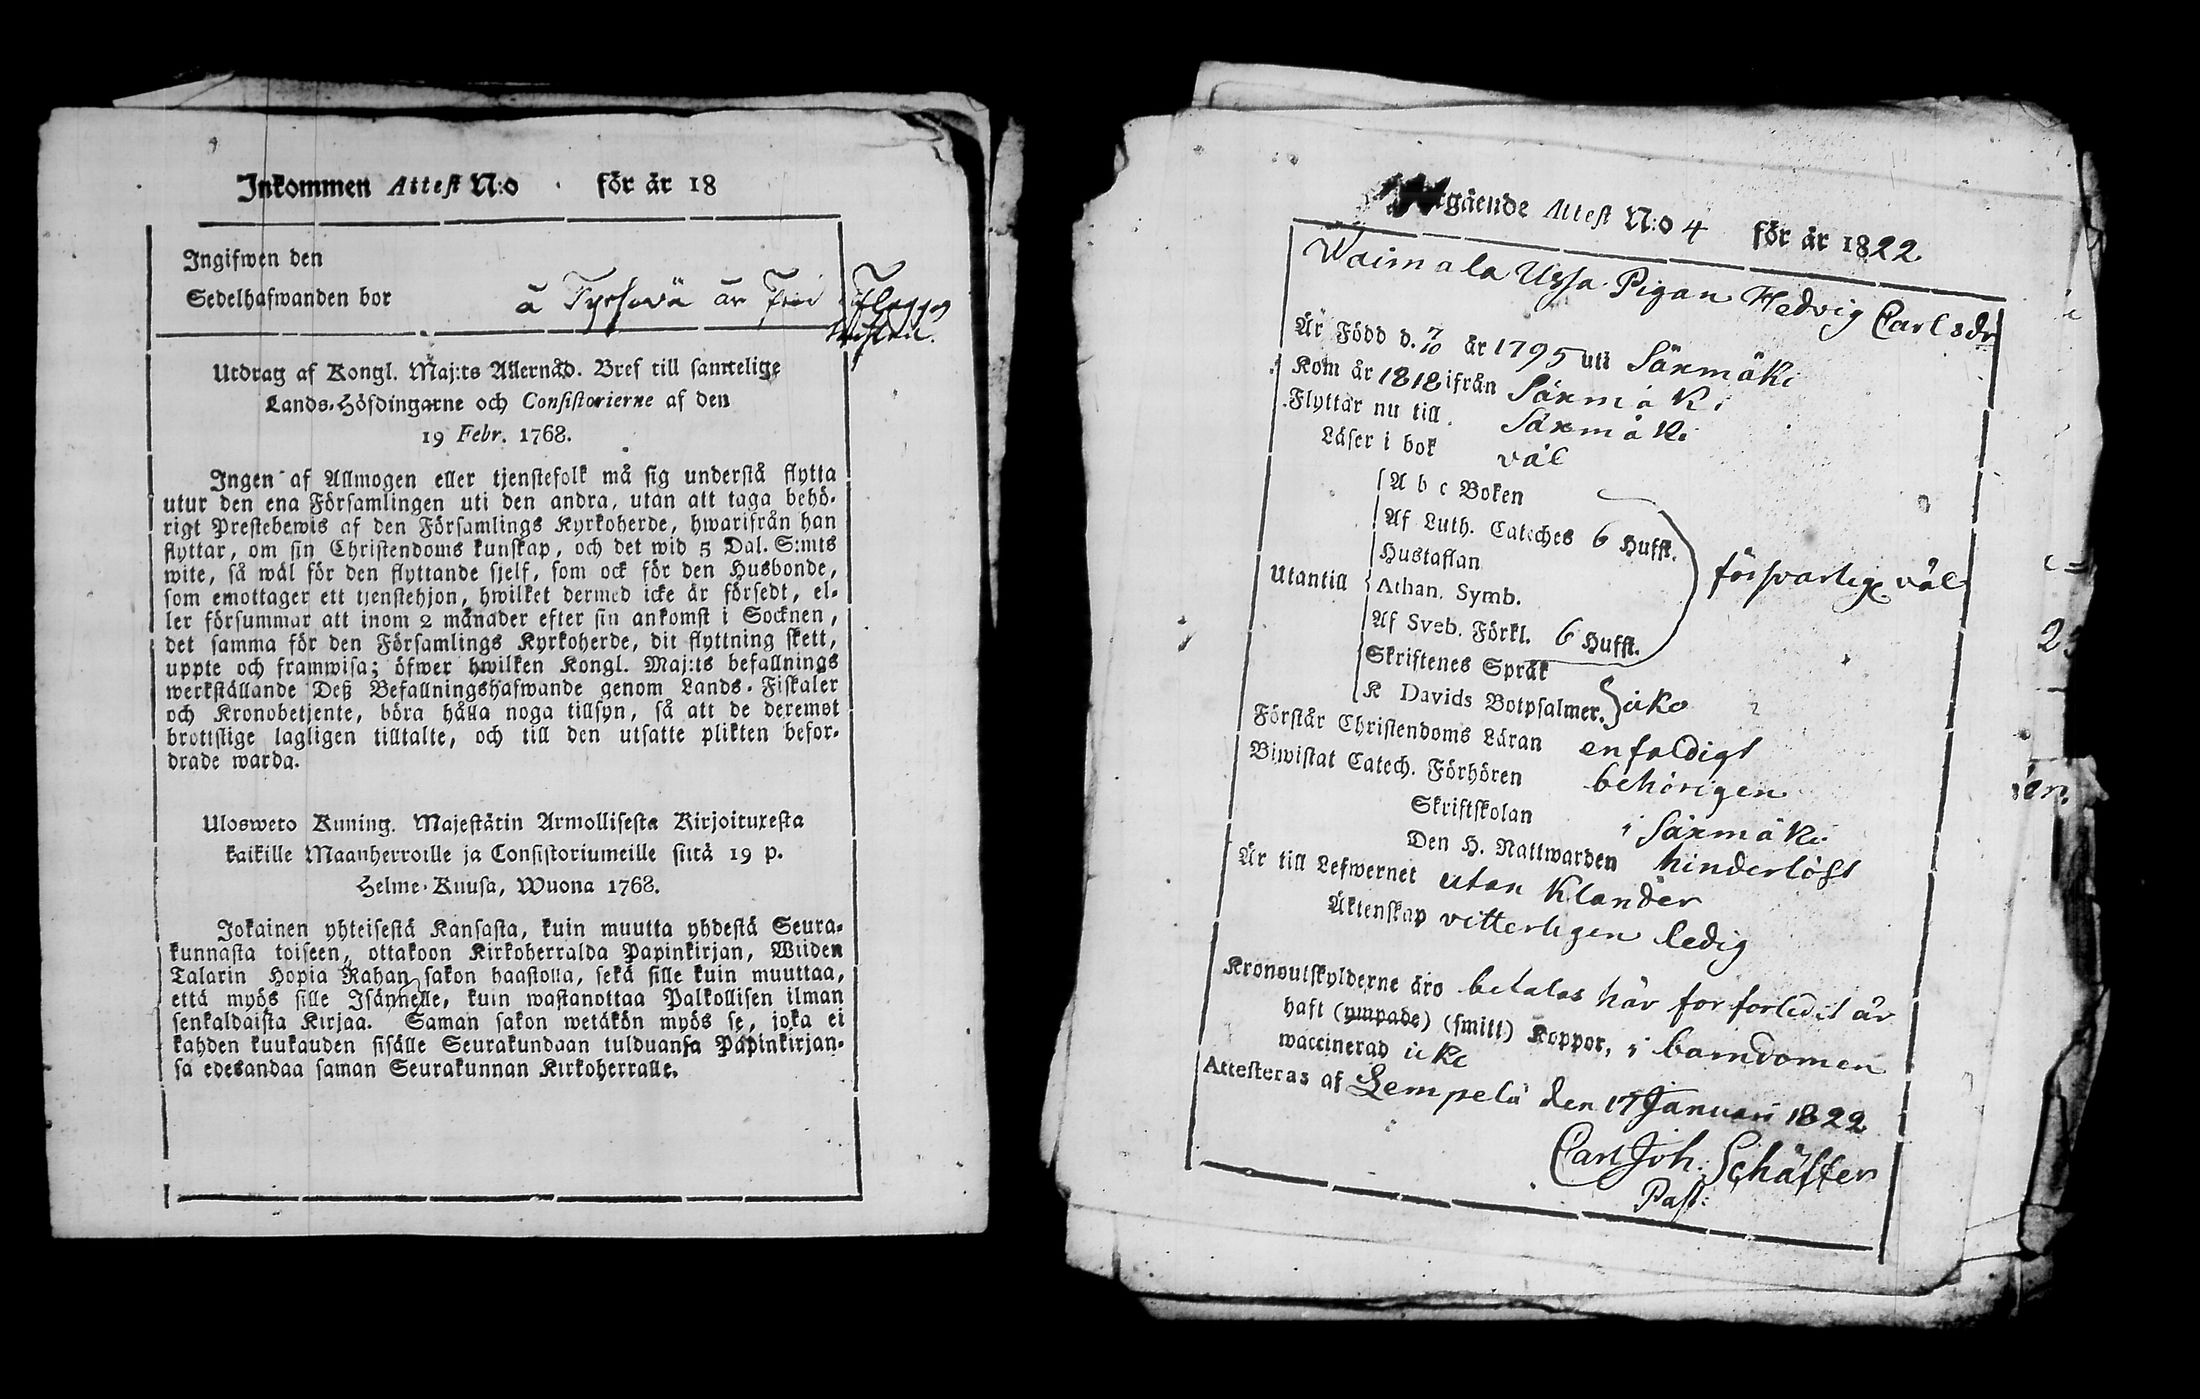 Inkommen Attest N:o för år 18
Ingifwen den
Sedelhafwanden bor å
Utdrag af Kongl. Maj:ts Allernåd. Bref till samtelige
Lands-Höfdingarne och Consistorierne af den
19 Febr. 1768.
Ingen af Allmogen eller tjenstefolk må sig understå flytta
utur den ena Församlingen uti den andra, utan att taga behö-
rigt Prestebewis af den Församlings Kyrkoherde, hwarifrån han
flyttar, om sin Christendoms kunskap, och det wid 5 Dal. S:mts
wite, så wäl för den flyttande sjelf, som ock för den Husbonde,
som emottager ett tjenstehjon, hwilket dermed icke är försedt, el-
ler försummar att inom 2 månader efter sin ankomst i Socknen,
det samma för den Församlings Kyrkoherde, dit flyttning skett,
uppte och framwisa; öfwer hwilken Kongl. Maj:ts befallnings
werkställande Deß Befallningshafwande genom Lands-Fiskaler
och Kronobetjente, böra hålla noga tillsyn, så att de deremot
brottslige lagligen tilltalte, och till den utsatte plikten befor-
drade warda.
Ulosweto Kuning. Majestätin Armollisesta Kirjoituxesta
kaikille Maanherroille ja Consistoriumeille siitä 19 p.
Helme-Kuusa, Wuona 1768.
Jokainen yhteisestä Kansasta, kuin muutta yhdestä Seura-
kunnasta toiseen, ottakoon Kirkoherralda Papinkirjan, Wiiden
Talarin Hopia Rahan sakon haastolla, sekä sille kuin muuttaa,
että myös sille Isännelle, kuin wastanottaa Palkollisen ilman
senkaldaista Kirjaa. Saman sakon wetäkön myös se, joka ei
kahden kuukauden sisälle Seurakundaan tulduansa Papinkirjan-
sa edesandaa saman Seurakunnan Kirkoherralle.
gående Attest N:o 4 för år 1822
Waimala Ussa Pigan Hedvig Carlsdr
Är Född d. 7/10 år 1795 uti Säxmäki
Kom år 1818 ifrån Säxmäki
Flyttar nu till Säxmäki
Läser i bok väl
Utantill
A b c Boken
Af Luth. Cateches 6 Hufft.
Hustaflan
Athan. Symb.
Af Sveb. Förkl. 6 Hufft.
försvarlige väl
Skriftenes Språk
K Davids Botpsalmer. icke
Förstår Christendoms Läran enfaldigt
Biwistat Catech. Förhören behörigen
Skriftskolan i Säxmäki
Den H. Nattwarden hinderlöst
Är till Lefwernet utan Klander
Äktenskap vitterligen ledig
Kronoutskylderne äro betalas här for forledit år
haft (ympade) (smitt) Koppor, i barndomen
waccinerad icke
Attesteras af Lempelä den 17 Januari 1822
Carl Joh: Schäffer
Past: